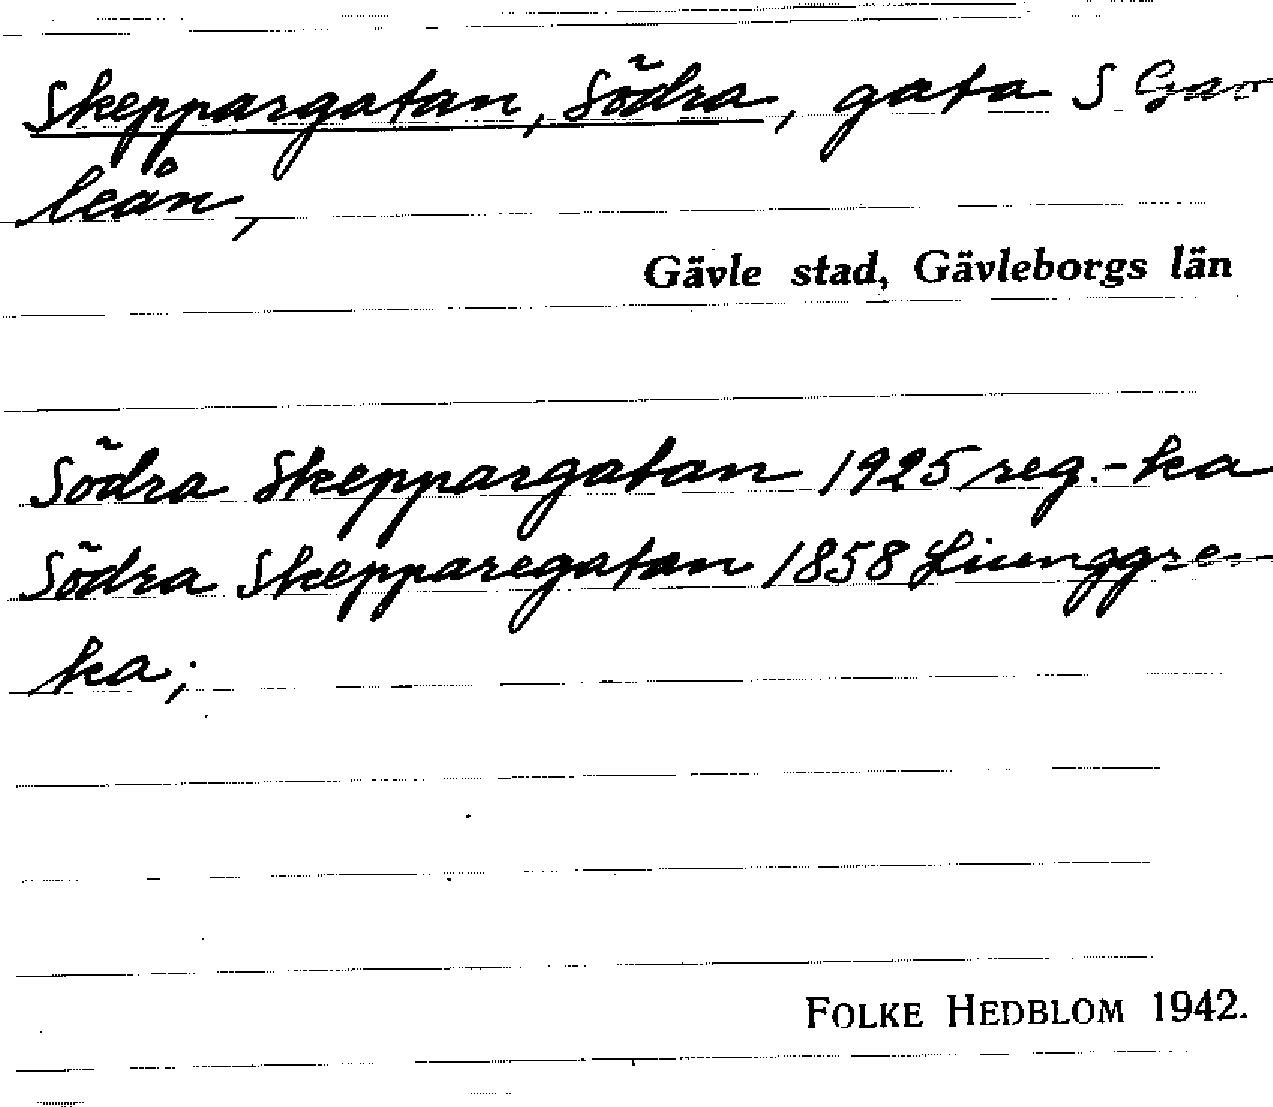 Skeppargatan, Södra, gata S Gav
leån,
Gävle stad, Gävleborgs län
Södra Skeppargatan 1925 reg.-ka
Södra Skepparegatan 1858 Ljunggren
ka;
FOLKE HEDBLOM 1942.